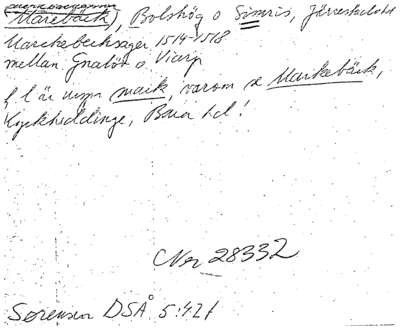 Marebäck), Bolshög o Simris, Järrestads hd
Marckebecksager, 1514-1518
mellan Gnalöv o. Viarp
f l är nypn maik, varom x Markebäck,
Kyrkheddinge, Bara hd!
Nr 28332
Sørensen DSÅ 5:421